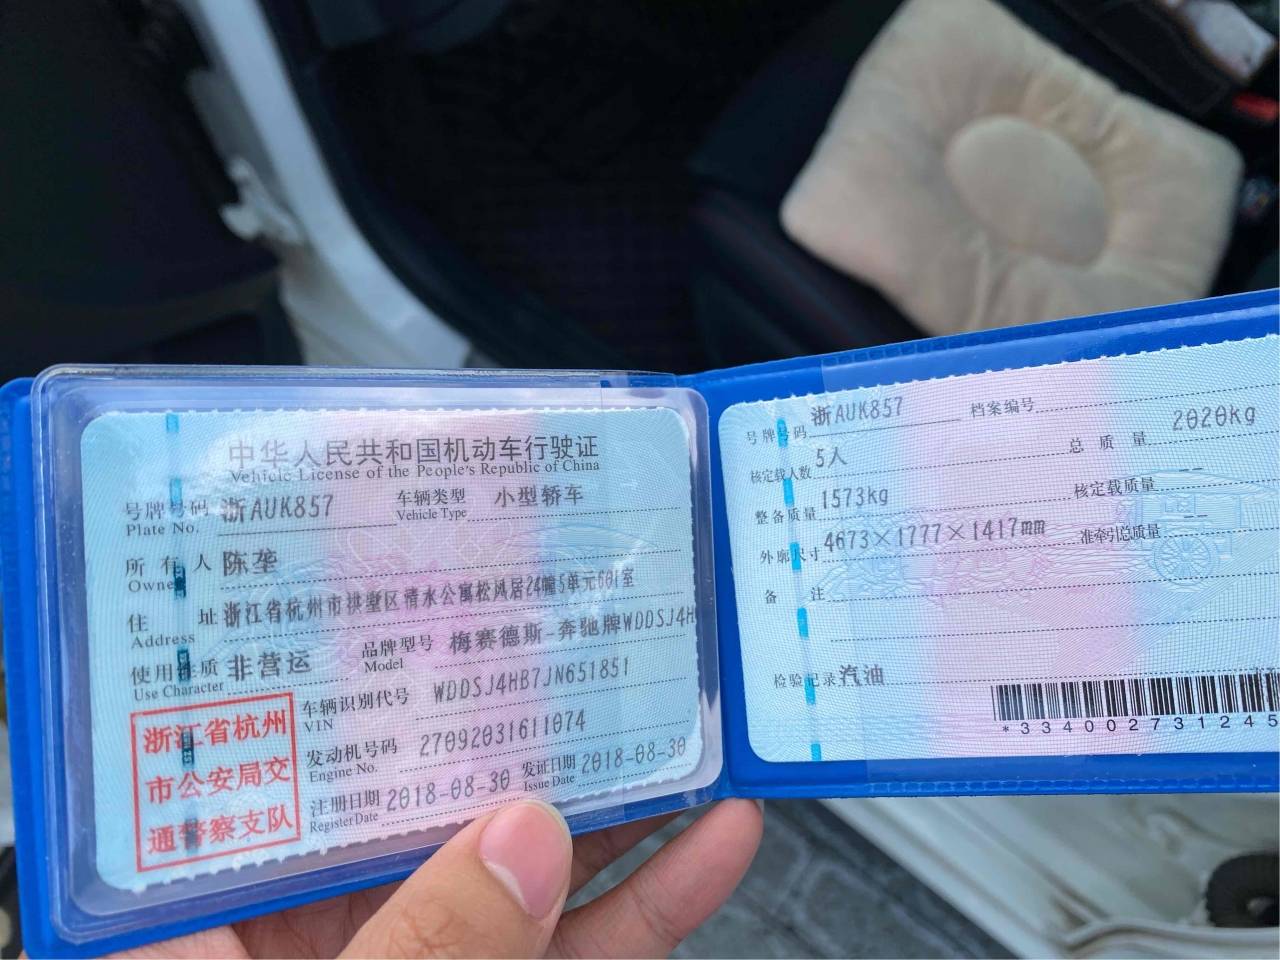 中华人民共和国机动车行驶证
Vehicle License of the People's Republic of China
号牌号码 浙AUK857 车辆类型 小型轿车
Plate No. Vehicle Type
所有人 陈垄
Owner
住址 浙江省杭州市拱墅区清水公寓松风居24幢5单元601室
Address
使用性质 非营运 品牌型号 梅赛德斯-奔驰牌WDDSJ4H
Use Character Model
车辆识别代号 WDDSJ4HB7JN651851
VIN
发动机号码 27092031611074
Engine No.
注册日期 2018-08-30 发证日期 2018-08-30
Register Date Issue Date
浙江省杭州
市公安局交
通警察支队
号牌号码 浙AUK857 档案编号
核定载人数 5人 总质量 2020kg
整备质量 1573kg 核定载质量 --
外廓尺寸 4673×1777×1417mm 准牵引总质量 --
备注
检验记录 汽油
*334002731245